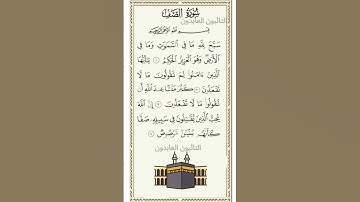 سُورَةُ الصَّفِّ
التائبون العابدون
بِسْمِ اللَّهِ الرَّحْمَٰنِ الرَّحِيمِ
سَبَّحَ لِلَّهِ مَا فِي السَّمَٰوَٰتِ وَمَا فِي
الْأَرْضِ وَهُوَ الْعَزِيزُ الْحَكِيمُ ١ يَٰٓأَيُّهَا
الَّذِينَ ءَامَنُوا لِمَ تَقُولُونَ مَا لَا
تَفْعَلُونَ ٢ كَبُرَ مَقْتًا عِندَ اللَّهِ أَن
تَقُولُوا مَا لَا تَفْعَلُونَ ٣ إِنَّ اللَّهَ
يُحِبُّ الَّذِينَ يُقَٰتِلُونَ فِي سَبِيلِهِ صَفًّا
كَأَنَّهُم بُنْيَٰنٌ مَّرْصُوصٌ ٤
التائبون العابدون